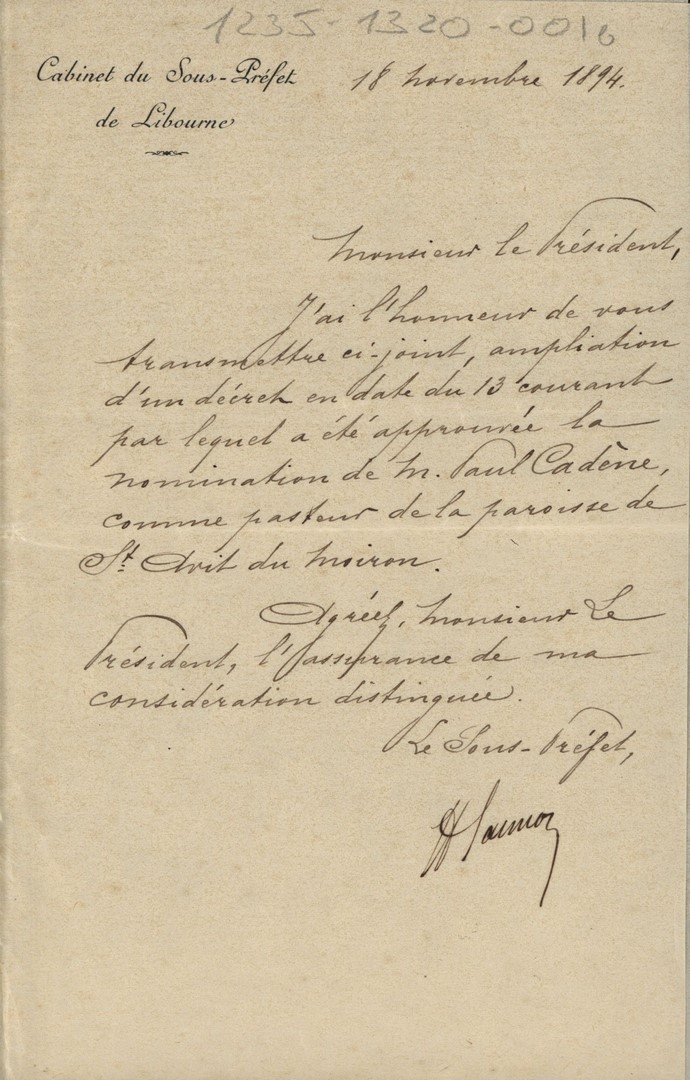 1235-1320-0016
Cabinet du Sous-Préfet
de Libourne
18 novembre 1894.
Monsieur le Président,
J'ai l'honneur de vous
transmettre ci-joint, ampliation
d'un décret en date du 13 courant
par lequel a été approuvée la
nomination de M. Paul Cadène,
comme pasteur de la paroisse de
St Avit du Moiron.
Agréez, Monsieur Le
Président, l'assurance de ma
considération distinguée.
Le Sous-Préfet,